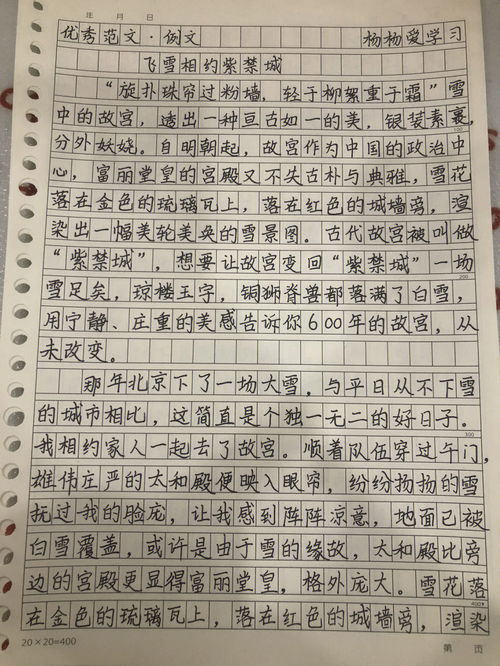 年 月 日
优秀范文·例文 杨杨爱学习
飞雪相约紫禁城
“旋扑珠帘过粉墙，轻于柳絮重于霜”雪
中的故宫，透出一种亘古如一的美，银装素裹，
100
分外妖娆。自明朝起，故宫作为中国的政治中
心，富丽堂皇的宫殿又不失古朴与典雅，雪花
落在金色的琉璃瓦上，落在红色的城墙旁，渲
染出一幅美轮美奂的雪景图。古代故宫被叫做
“紫禁城”，想要让故宫变回“紫禁城”一场
200
雪足矣，琼楼玉宇，铜狮脊兽都落满了白雪，
用宁静、庄重的美感告诉你600年的故宫，从
未改变。
那年北京下了一场大雪。与平日从不下雪
的城市相比，这简直是个独一无二的好日子。
300
我相约家人一起去了故宫。顺着队伍穿过午门，
雄伟庄严的太和殿便映入眼帘，纷纷扬扬的雪
抚过我的脸庞，让我感到阵阵凉意，地面已被
白雪覆盖，或许是由于雪的缘故，太和殿比旁
边的宫殿更显得富丽堂皇，格外庞大。雪花落
400
在金色的琉璃瓦上，落在红色的城墙旁，渲染
20×20=400 第 页